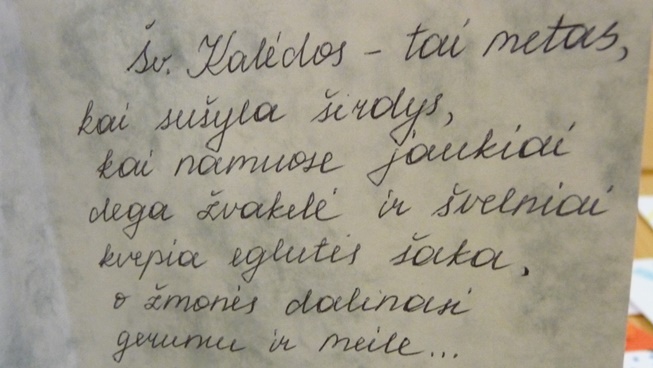 Šv. Kalėdos – tai metas,
kai sušyla širdys,
kai namuose jaukiai
dega žvakelė ir švelniai
kvepia eglutės šaka,
o žmonės dalinasi
gerumu ir meile...